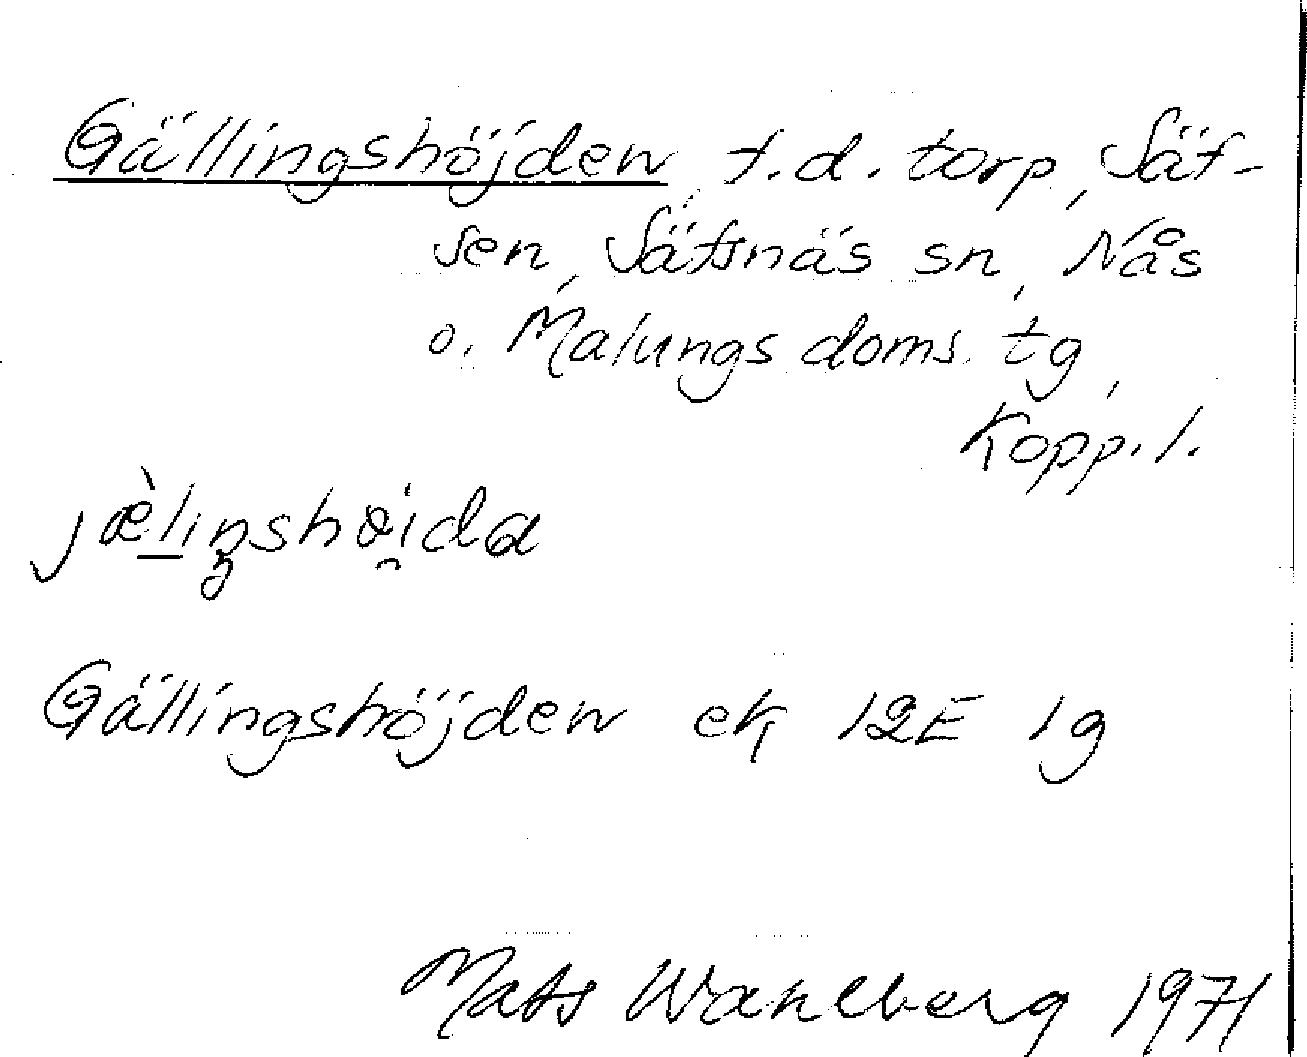 Gällingshöjden, f.d. torp, Säf-
sen, Säfsnäs sn, Nås
o. Malungs doms. tg,
Kopp.l.
jæ̀liŋshøi̯da
Gällingshöjden ek 12E 1g
Mats Wahlberg 1971